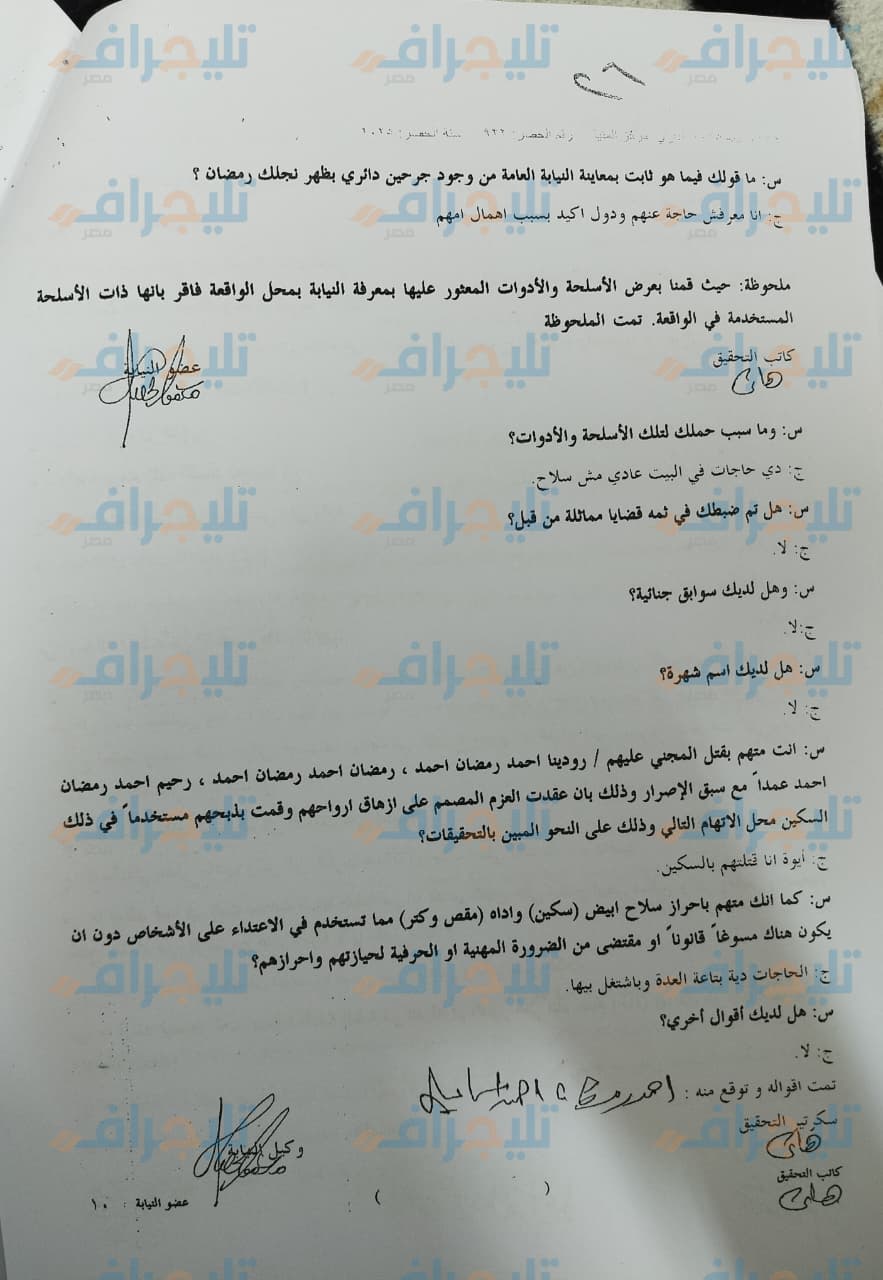 ٢٦
مركز المنيا رقم الحصر: ٩٢٢ سنة الحصر: ٢٠٢٥
س: ما قولك فيما هو ثابت بمعاينة النيابة العامة من وجود جرحين دائري بظهر نجلك رمضان ؟
ج: انا معرفش حاجة عنهم ودول اكيد بسبب اهمال امهم
ملحوظة: حيث قمنا بعرض الأسلحة والأدوات المعثور عليها بمعرفة النيابة بمحل الواقعة فاقر بانها ذات الأسلحة
المستخدمة في الواقعة. تمت الملحوظة
كاتب التحقيق عضو النيابة
هانى
س: وما سبب حملك لتلك الأسلحة والأدوات؟
ج: دي حاجات في البيت عادي مش سلاح.
س: هل تم ضبطك في ثمه قضايا مماثلة من قبل؟
ج: لا.
س: وهل لديك سوابق جنائية؟
ج:لا.
س: هل لديك اسم شهرة؟
ج: لا.
س: انت متهم بقتل المجني عليهم / رودينا احمد رمضان احمد ، رمضان احمد رمضان احمد ، رحيم احمد رمضان
احمد عمداً مع سبق الإصرار وذلك بان عقدت العزم المصمم على ازهاق ارواحهم وقمت بذبحهم مستخدماً في ذلك
السكين محل الاتهام التالي وذلك على النحو المبين بالتحقيقات؟
ج: أيوة انا قتلتهم بالسكين.
س: كما انك متهم باحراز سلاح ابيض (سكين) واداه (مقص وكتر) مما تستخدم في الاعتداء على الأشخاص دون ان
يكون هناك مسوغاً قانوناً او مقتضى من الضرورة المهنية او الحرفية لحيازتهم واحرازهم؟
ج: الحاجات دية بتاعة العدة وباشتغل بيها.
س: هل لديك أقوال أخري؟
ج: لا.
تمت اقواله و توقع منه : احمد
سكرتير التحقيق وكيل النيابة
هانى
كاتب التحقيق
هانى
( ) عضو النيابة : ١٠
تليجراف
مصر